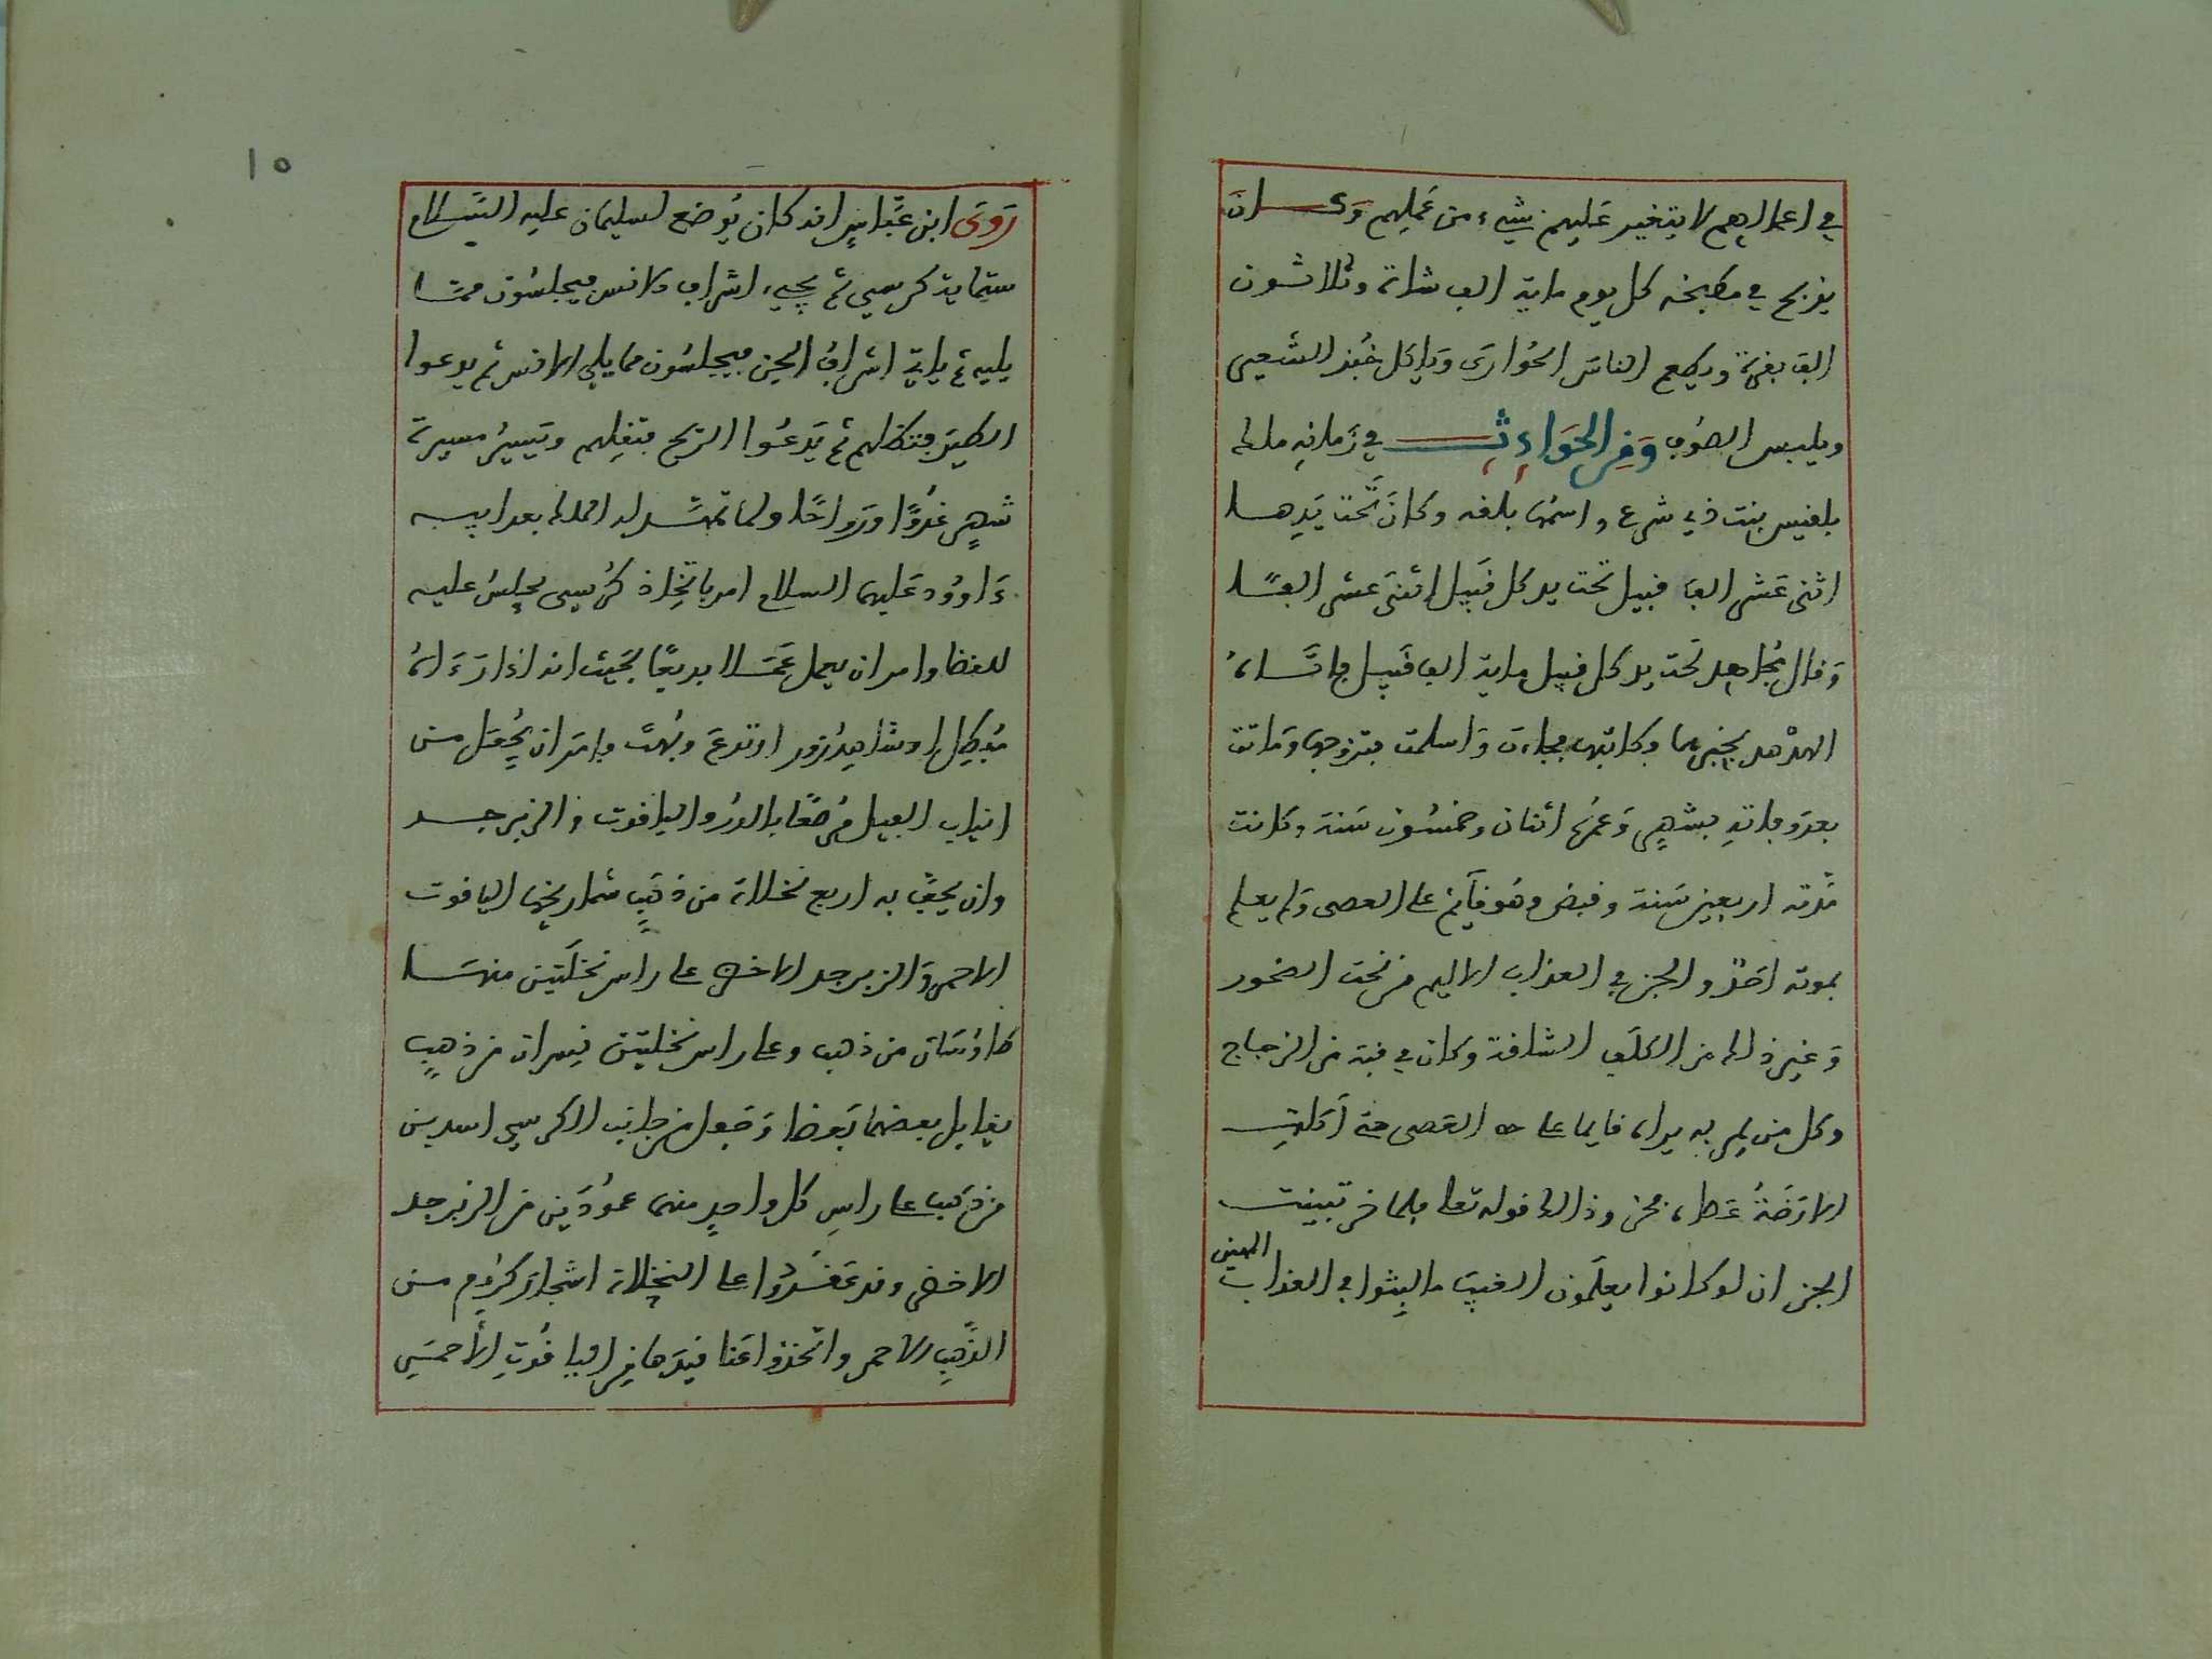 في اعمالهم لا يتغير عليهم شيء من عملهم وَكــان
يذبح في مطبخه كل يوم ماية الف شاة وثلاثون
الف بقرة ويطعم الناسَ الحُوارَى وَياكل خُبْز الشعير
ويلبس الصُوف وَمِن الحَوَادِثِ في زَمانِه ملك
بلقيس بنت ذي شرع واسمُها بلقه وكانَ تَحْت يَدِهــا
اثنى عَشر الف قبيل تحت يد كل قَبِيل اثنَى عشر الفًــا
وَقال مُجاهد تَحت يد كل قبيل ماية الف قَبِيل فاتــاهُ
الهدْهد بخبرها فكاتبها فجاءت وَاسلمت فتزوجها وَماتت
بعدَ وفاتهِ بشهرٍ وَعمرُه اثنان وخمسُون سَنة وكانت
مُدّته اربعين سَنة وقبض وهُو قَايم على العصى وَلم يعلم
بموته احَدٌ والجن في العذاب الاليم من نحت الصخور
وَغير ذالك من الكلَف الشاقة وكان في قبة من الزجاج
وكل من يمر به يراه قايما على العَصى حتى أكلتِ
الارَضَةُ عَصاه فخر وذالك قوله تعلى فلما خر تبينت
الجن ان لو كانوا يعلَمون الغيبَ ما لبِثوا في العذاب المهين
رَوَى ابن عبَّاسٍ انه كان يُوضع لسليمان عليه السَّــلام
ستماية كرسي ثم يجيء اشراف الانس فيجلسُون ممــا
يليه ثم ياتي اشرافُ الجن فيجلسُون مما يلي الانس ثم يدعوا
الطيرَ فتظلهم ثم يَدعُوا الرّيح فتقِلهم وتَسيرُ مسيرة
شهرٍ غدُوًّا ورَواحًا ولما تمهَّد له الملك بعد ابيــه
دَاووُد عَليهما السلام امر باتّخِاذ كُرسي يجلِسُ عليه
للقضا وامر ان يعمل عَمَــلا بديعًا بحَيث انه اذا رَءَاهُ
مُبطِل او شاهِد زور ارتدعَ وبُهت وامَرَ ان يُجعَل من
انياب الفيل مُرصّعًا بالدُر والياقوت والزبرجــد
وان يحفَّ به اربع نخلاة من ذهَبٍ شماريخها الياقوت
الاحمر وَالزبرجد الاخضر على راس نخلَتين منهــا
طاوُسَان من ذهب وعلى راس نخلتين نِسران من ذهبٍ
يقابل بعضهما بَعضا وَجعل من جانب الكرسي اسدين
من ذهَب على راسِ كل واحِدٍ منهما عموُدَين من الزبرجد
الاخضر وقد عَقَدُوا على النخلاة اشجارَ كرُوم من
الذّهبِ الاحمر واتخذوا عَنا قيدَها مِن الياقُوتِ الأحمَــرِ
١٥